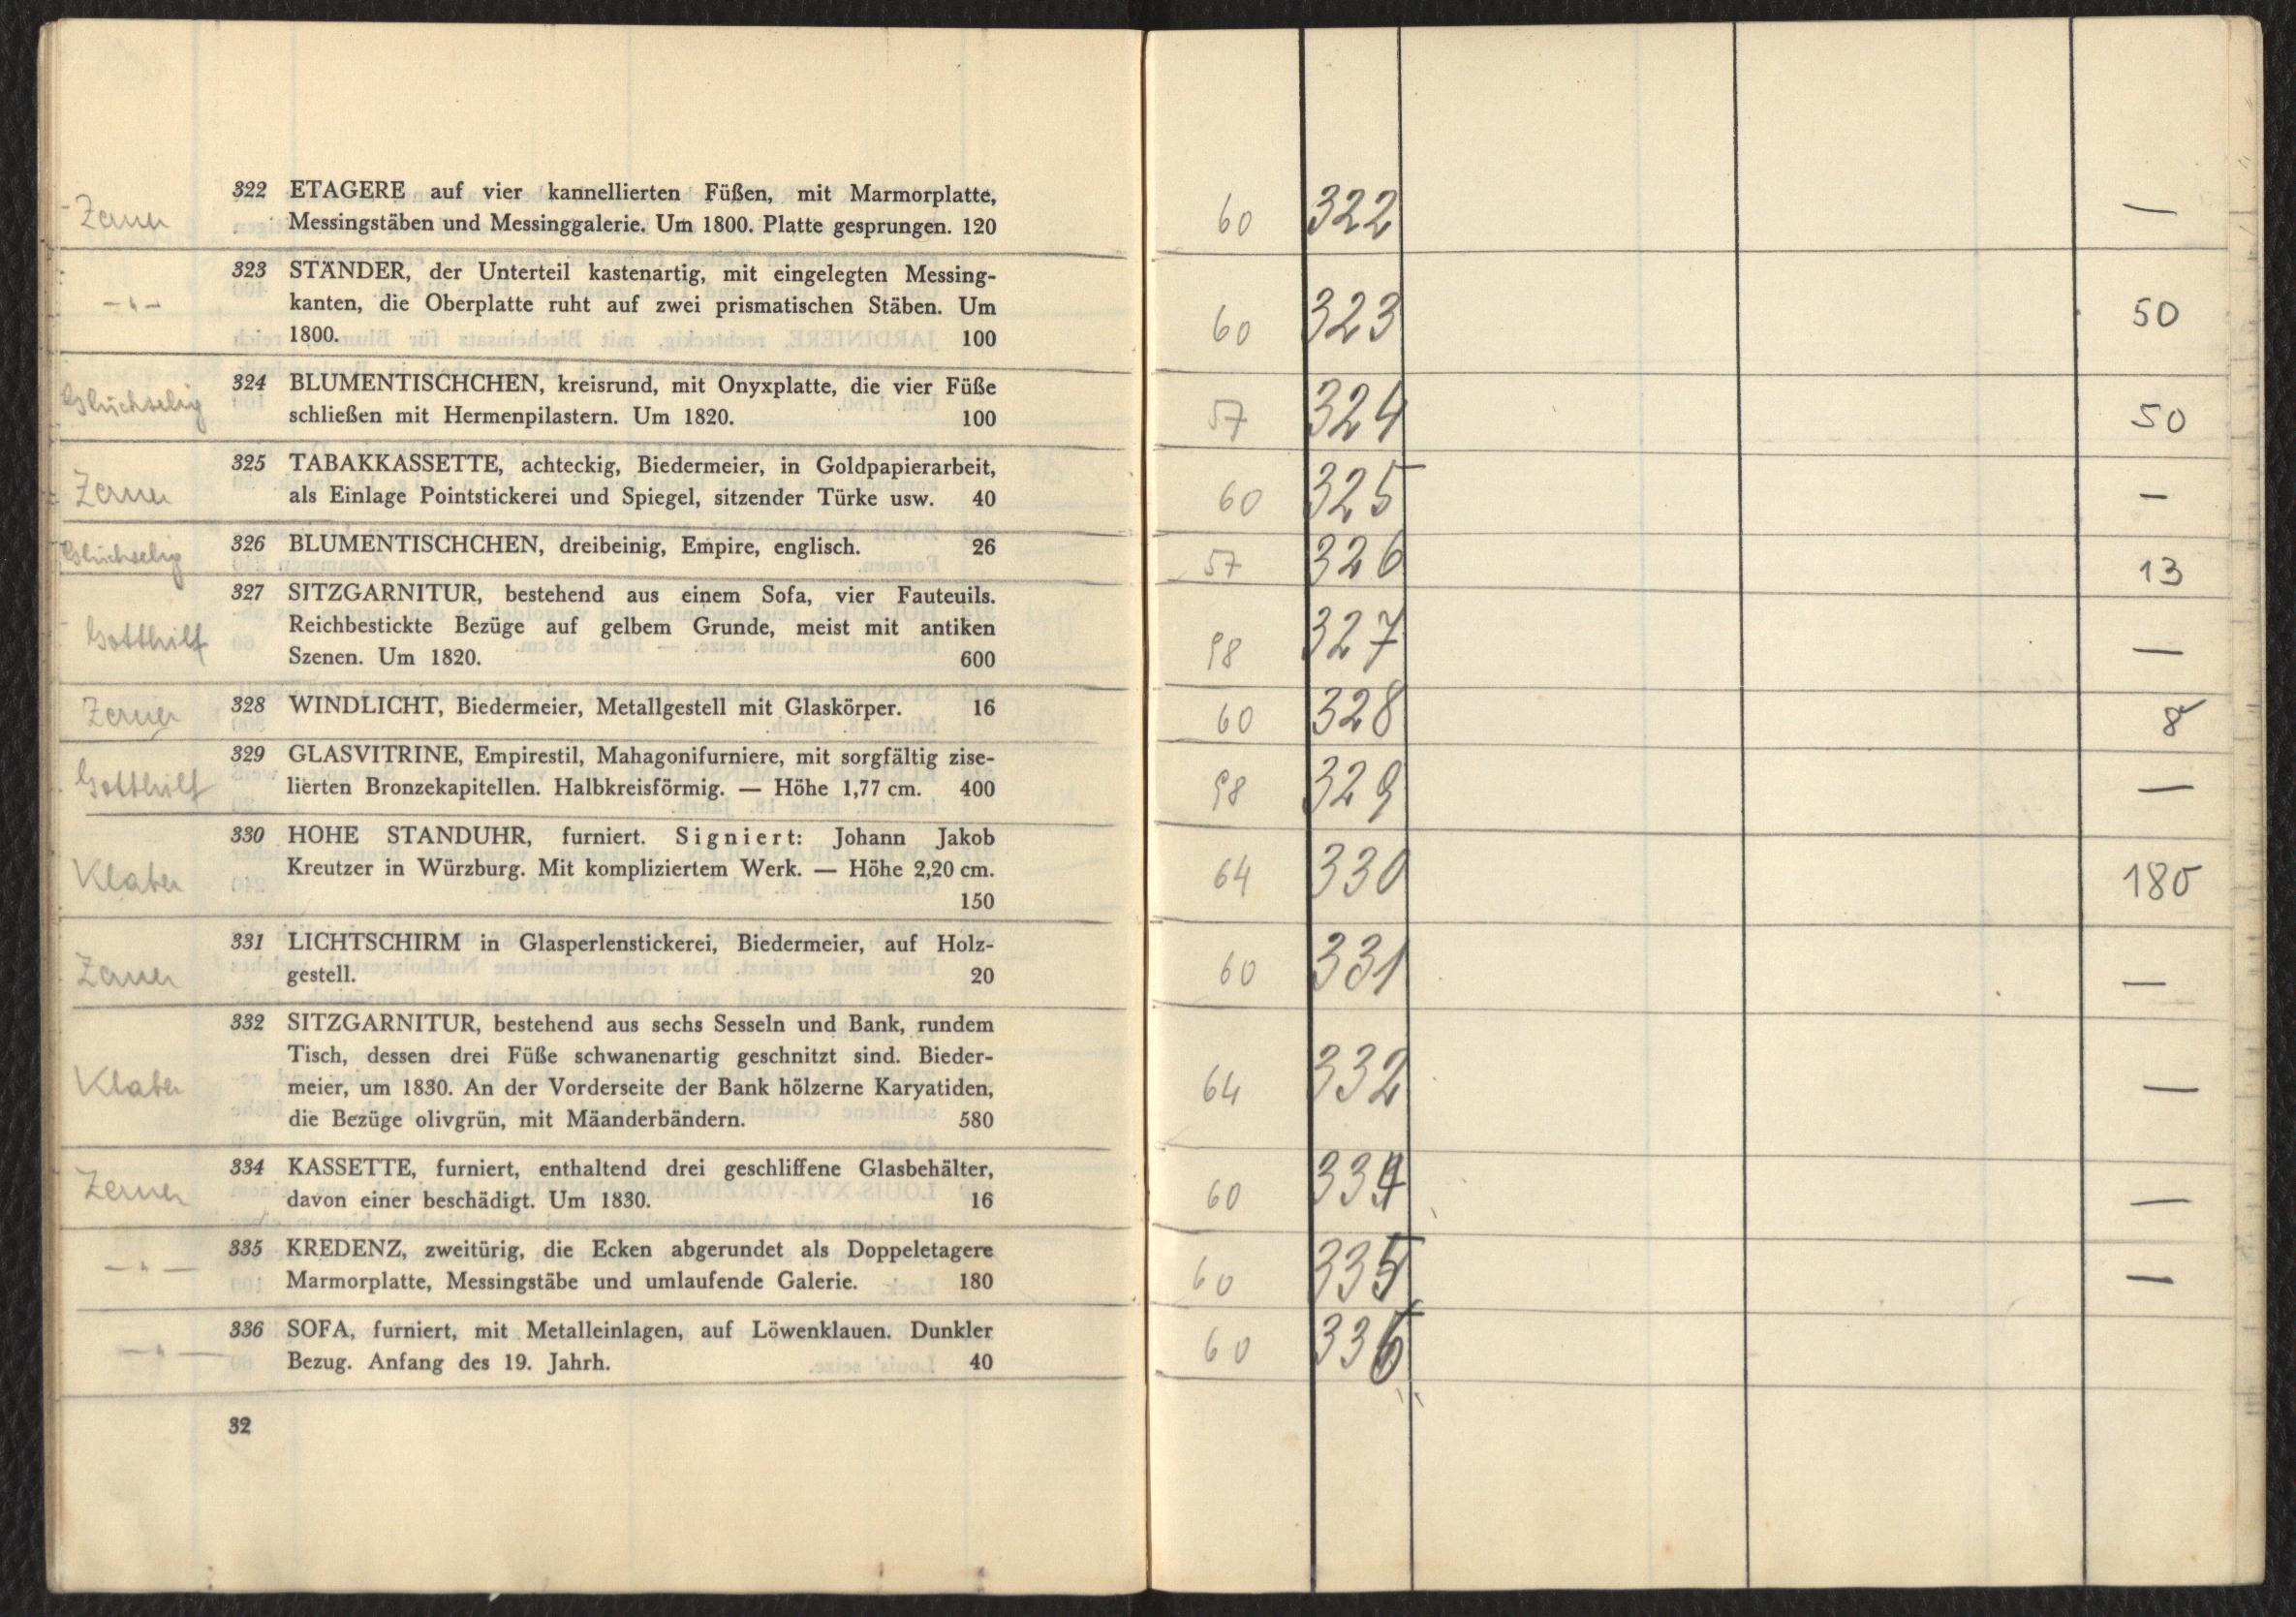 Zerner
322 ETAGERE auf vier kannellierten Füßen, mit Marmorplatte,
Messingstäben und Messinggalerie. Um 1800. Platte gesprungen. 120
– " –
323 STÄNDER, der Unterteil kastenartig, mit eingelegten Messing-
kanten, die Oberplatte ruht auf zwei prismatischen Stäben. Um
1800. 100
Glückselig
324 BLUMENTISCHCHEN, kreisrund, mit Onyxplatte, die vier Füße
schließen mit Hermenpilastern. Um 1820. 100
Zerner
325 TABAKKASSETTE, achteckig, Biedermeier, in Goldpapierarbeit,
als Einlage Pointstickerei und Spiegel, sitzender Türke usw. 40
Glückselig
326 BLUMENTISCHCHEN, dreibeinig, Empire, englisch. 26
Gotthilf
327 SITZGARNITUR, bestehend aus einem Sofa, vier Fauteuils.
Reichbestickte Bezüge auf gelbem Grunde, meist mit antiken
Szenen. Um 1820. 600
Zerner
328 WINDLICHT, Biedermeier, Metallgestell mit Glaskörper. 16
Gotthilf
329 GLASVITRINE, Empirestil, Mahagonifurniere, mit sorgfältig zise-
lierten Bronzekapitellen. Halbkreisförmig. — Höhe 1,77 cm. 400
Klaber
330 HOHE STANDUHR, furniert. Signiert: Johann Jakob
Kreutzer in Würzburg. Mit kompliziertem Werk. — Höhe 2,20 cm.
150
Zerner
331 LICHTSCHIRM in Glasperlenstickerei, Biedermeier, auf Holz-
gestell. 20
Klaber
332 SITZGARNITUR, bestehend aus sechs Sesseln und Bank, rundem
Tisch, dessen drei Füße schwanenartig geschnitzt sind. Bieder-
meier, um 1830. An der Vorderseite der Bank hölzerne Karyatiden,
die Bezüge olivgrün, mit Mäanderbändern. 580
Zerner
334 KASSETTE, furniert, enthaltend drei geschliffene Glasbehälter,
davon einer beschädigt. Um 1830. 16
– " –
335 KREDENZ, zweitürig, die Ecken abgerundet als Doppeletagere
Marmorplatte, Messingstäbe und umlaufende Galerie. 180
– " –
336 SOFA, furniert, mit Metalleinlagen, auf Löwenklauen. Dunkler
Bezug. Anfang des 19. Jahrh. 40
32
60 322 —
60 323 50
57 324 50
60 325 —
57 326 13
98 327 —
60 328 8
98 329 —
64 330 180
60 331 —
64 332 —
60 334 —
60 335 —
60 336